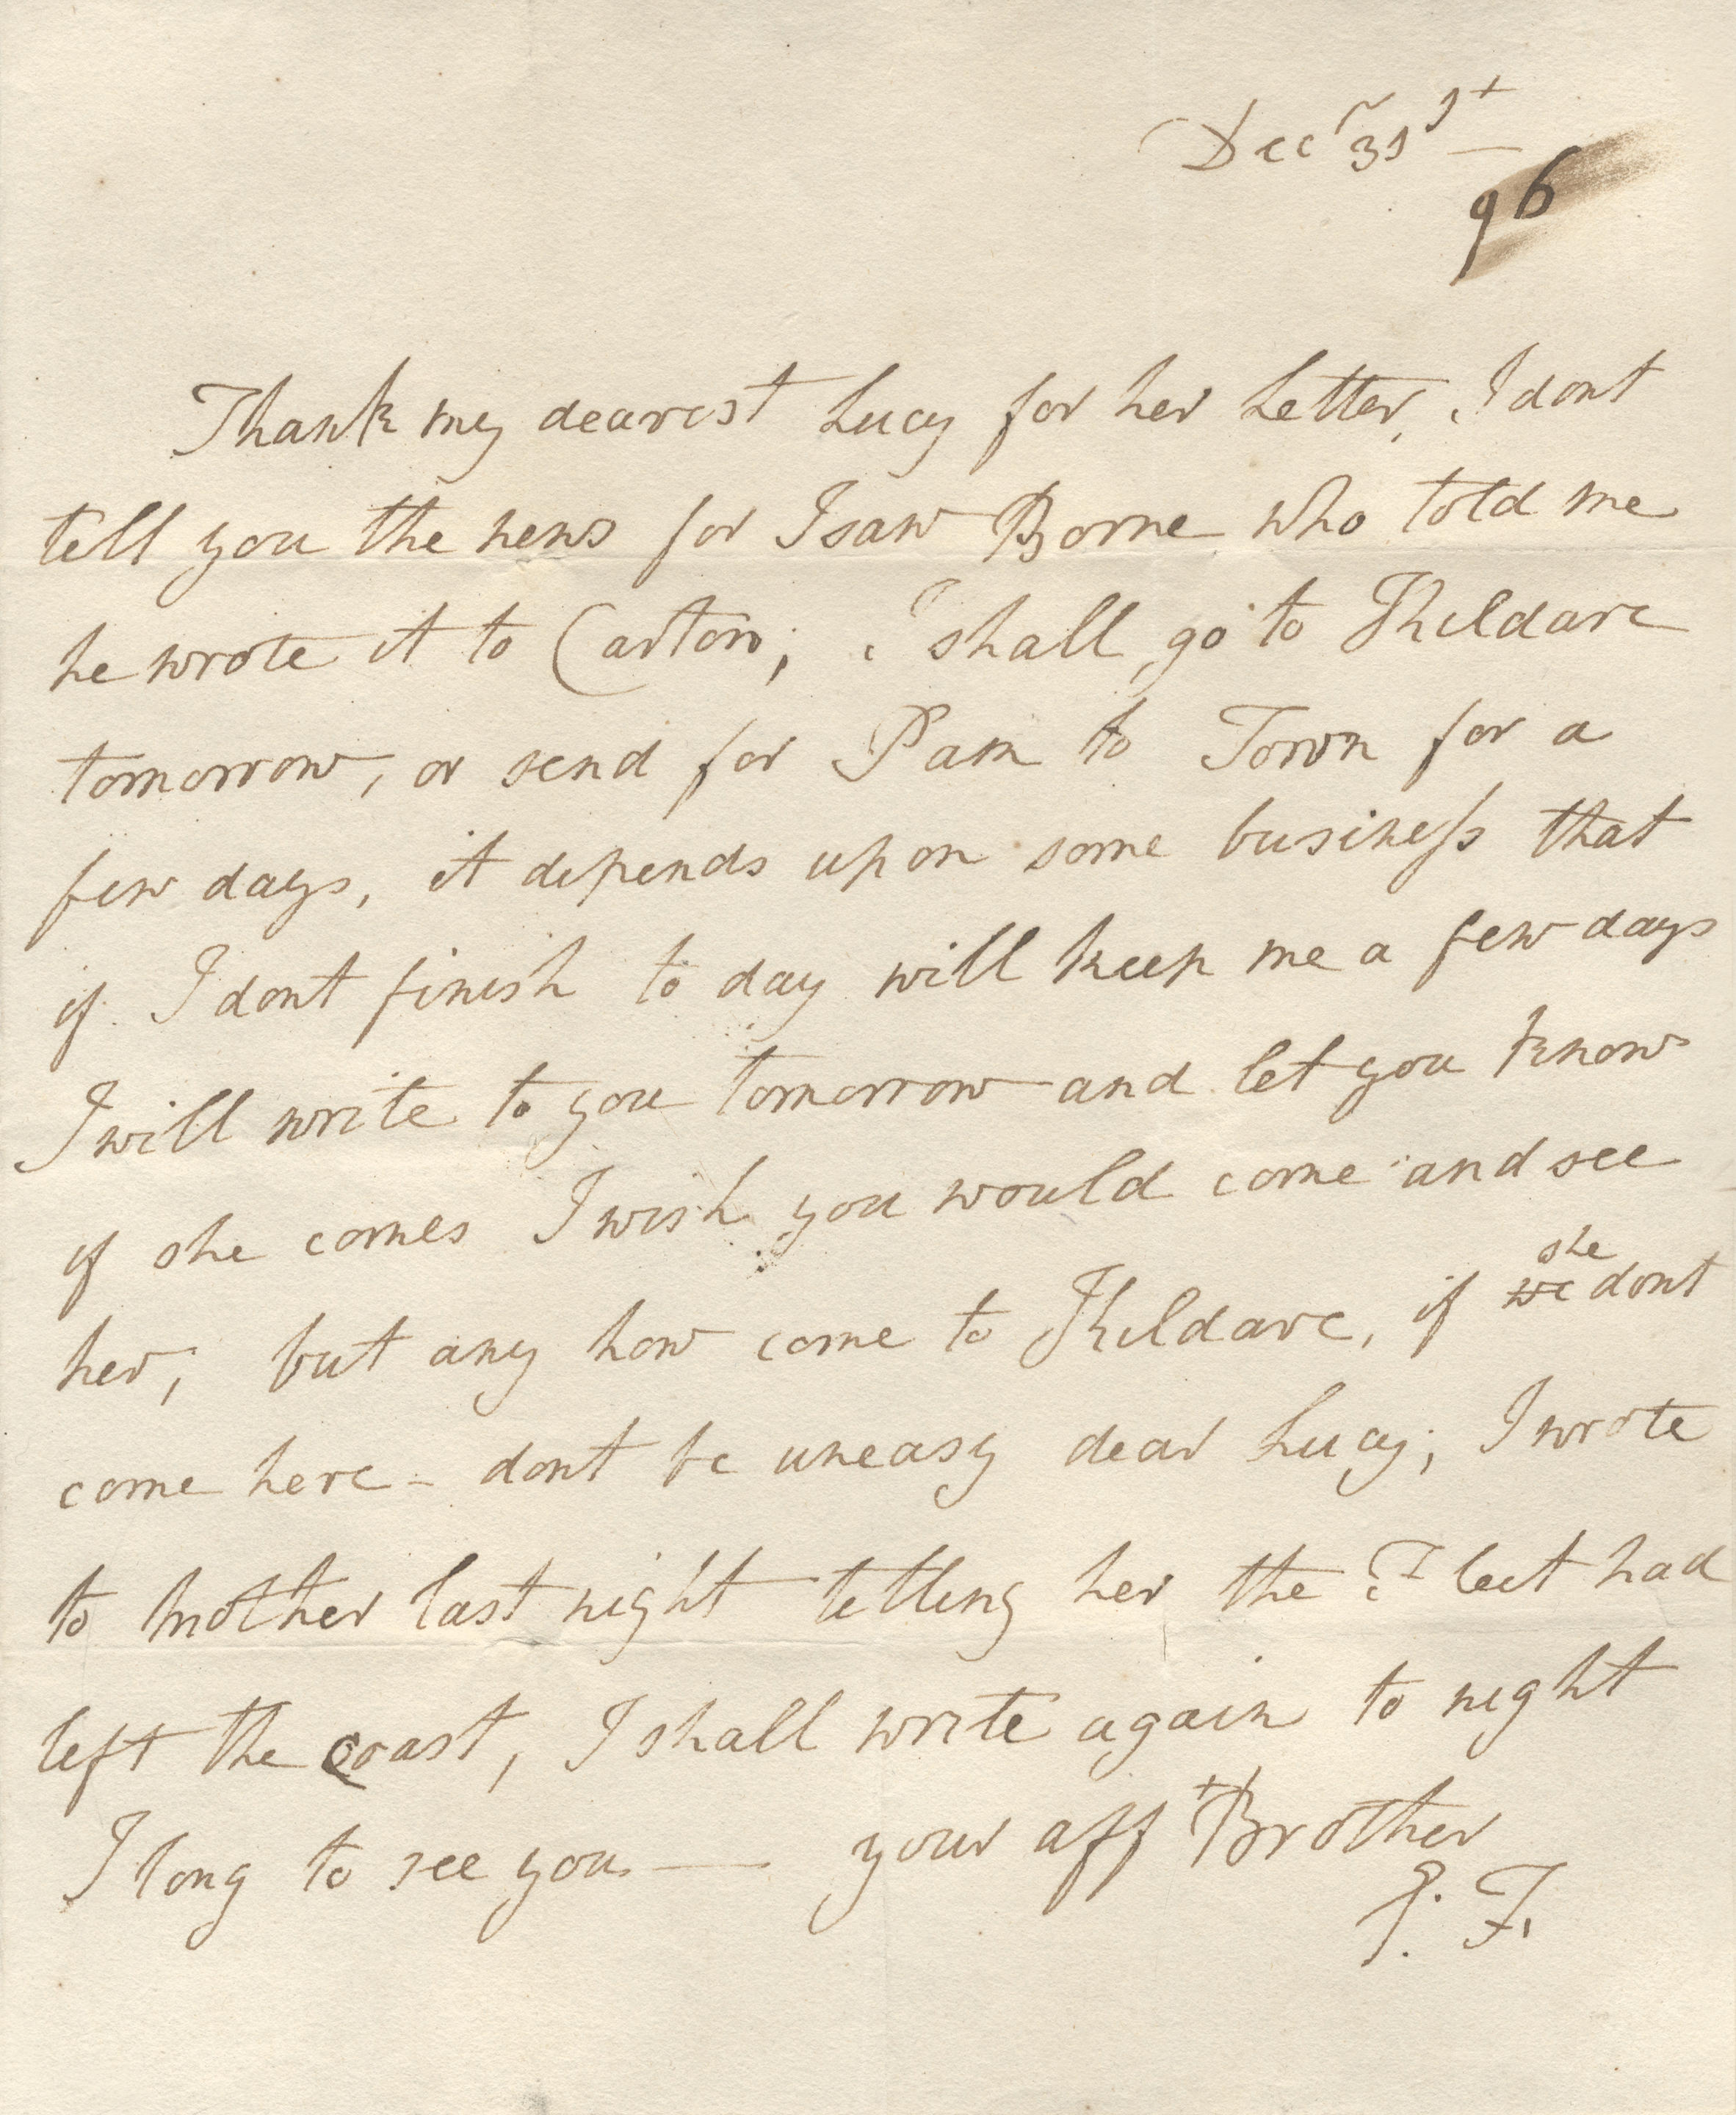 Decr 31st
96
Thank my dearest Lucy for her Letter, I dont
tell you the news for I saw Borne who told me
he wrote it to Carton; I shall go to Kildare
tomorrow, or send for Pam to Town for a
few days, it depends upon some business that
if I dont finish to day will keep me a few days
I will write to you tomorrow and let you know
if she comes I wish you would come and see
her, but any how come to Kildare, if we she dont
come here - dont be uneasy dear Lucy; I wrote
to Mother last night telling her the Fleet had
left the Coast, I shall write again to night
I long to see you — your afft Brother
E. F.